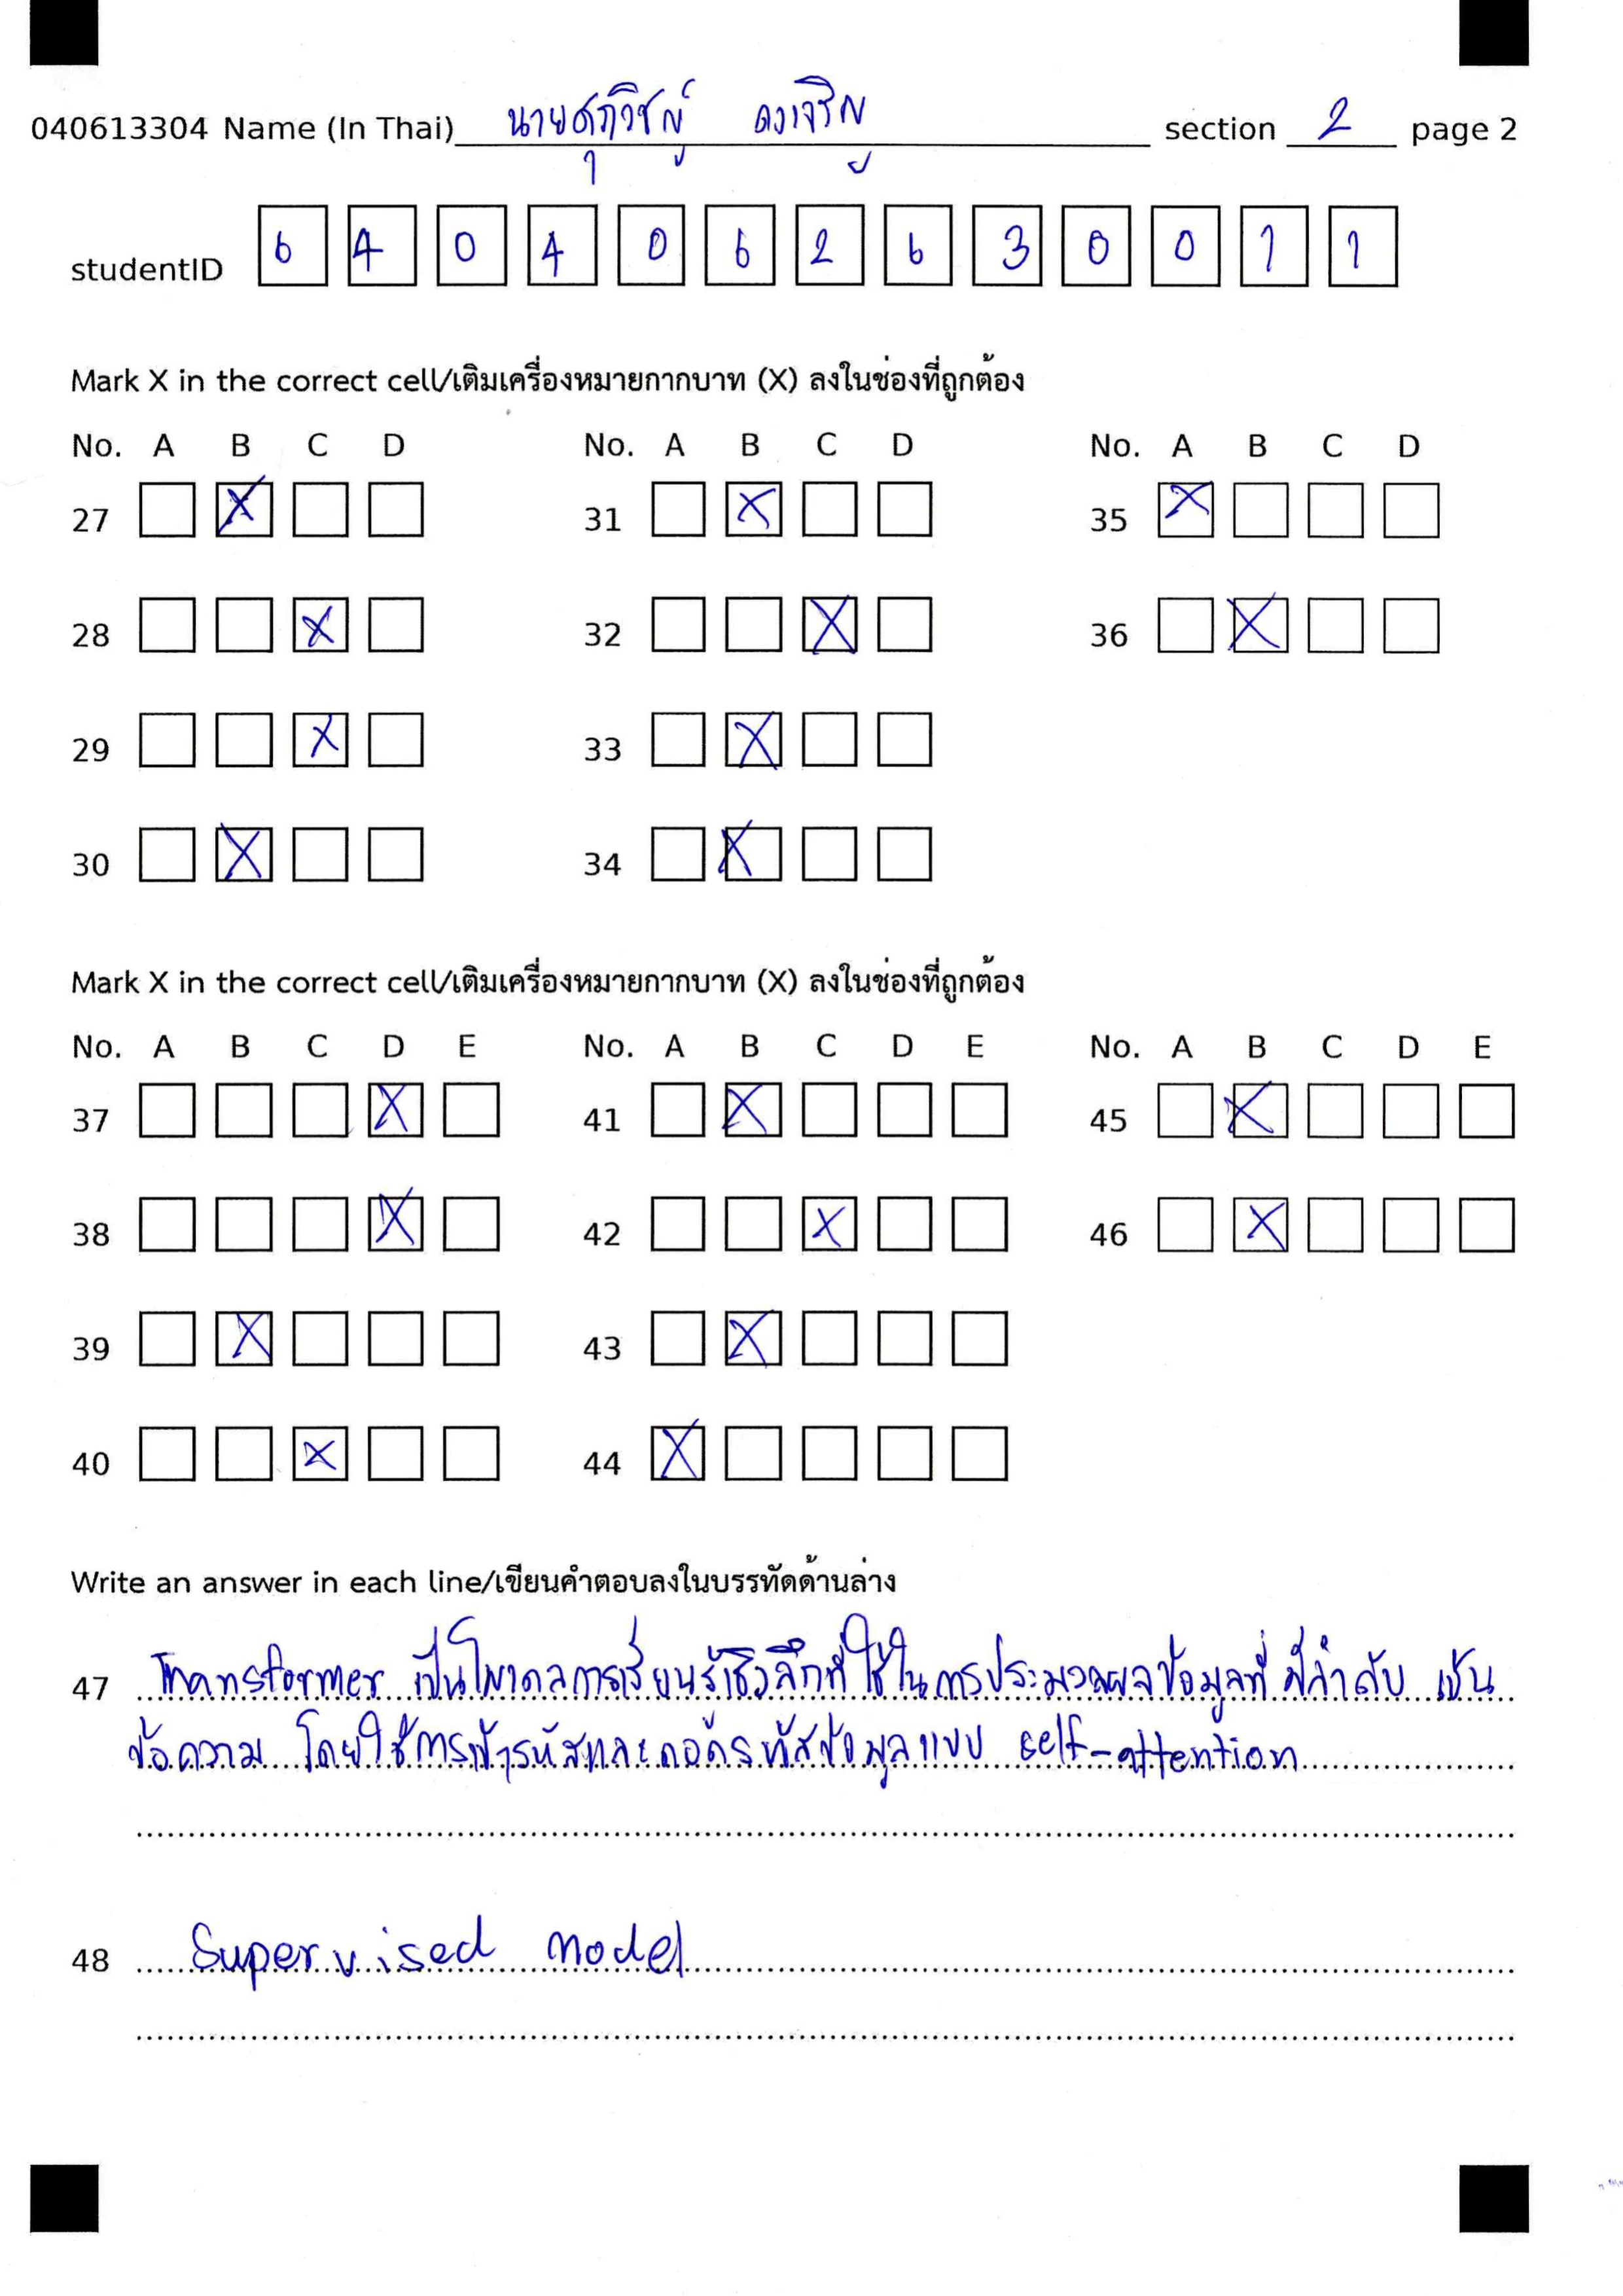 040613304 Name (In Thai) นายศุภวิชญ์ ดวงเจริญ section 2 page 2
studentID 6 4 0 4 0 6 2 6 3 0 0 1 1
Mark X in the correct cell/เติมเครื่องหมายกากบาท (X) ลงในช่องที่ถูกต้อง
No. A B C D No. A B C D No. A B C D
27 X 31 X 35 X
28 X 32 X 36 X
29 X 33 X
30 X 34 X
Mark X in the correct cell/เติมเครื่องหมายกากบาท (X) ลงในช่องที่ถูกต้อง
No. A B C D E No. A B C D E No. A B C D E
37 X 41 X 45 X
38 X 42 X 46 X
39 X 43 X
40 X 44 X
Write an answer in each line/เขียนคำตอบลงในบรรทัดด้านล่าง
47 Transformer เป็นโมเดลการเรียนรู้เชิงลึกที่ใช้ในการประมวลผลข้อมูลที่มีลำดับ เช่น
ข้อความ โดยใช้การเข้ารหัสและถอดรหัสข้อมูลแบบ self-attention
48 Supervised model